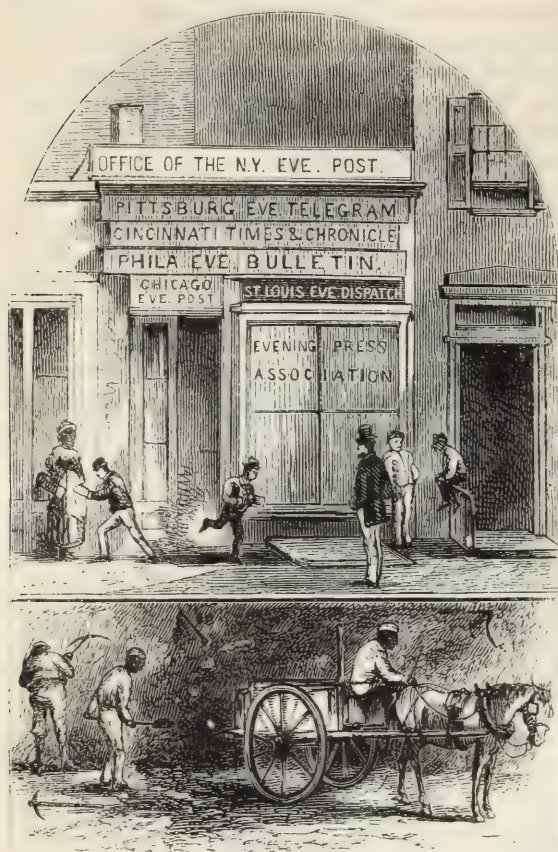 OFFICE OF THE N.Y. EVE. POST.
PITTSBURG EVE. TELEGRAM
CINCINNATI TIMES & CHRONICLE
PHILA EVE. BULLETIN.
CHICAGO
EVE. POST
ST. LOUIS EVE. DISPATCH
EVENING PRESS
ASSOCIATION